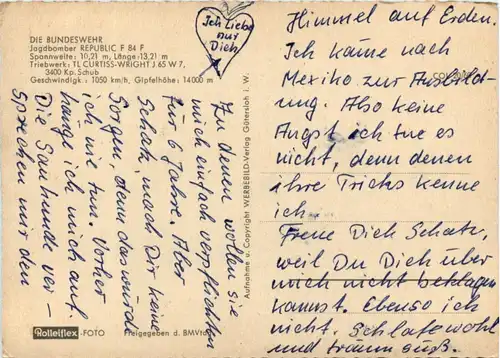 DIE BUNDESWEHR
Jagdbomber REPUBLIC F 84 F
Spannweite: 10,21 m, Länge: 13,21 m
Triebwerk: TL CURTISS-WRIGHT J 65 W 7,
3400 Kp. Schub
Geschwindigk.: 1050 km/h, Gipfelhöhe: 14000 m
Ich Liebe
nur
Dich
Sprechen mir den
Himmel auf Erden.
Ich käme nach
Mexiko zur Ausbild-
ung. Also keine
Angst ich tue es
nicht, denn denen
ihre Tricks kenne
ich.
Freue Dich Schatz,
weil Du Dich über
mich nicht beklagen
kannst. Ebenso ich
nicht. Schlafe wohl
und träum süß.
Zu denen wollen sie
mich einfach verpflichten
für 6 Jahre. Aber
Schatz, mach Dir keine
Sorgen, denn das würde
ich nie tun. Vorher
hänge ich mich auf
Die Sauhunde ver-
Aufnahme u. Copyright WERBEBILD-Verlag Gütersloh i. W.
Rolleiflex-FOTO
Freigegeben d. BMVtdg